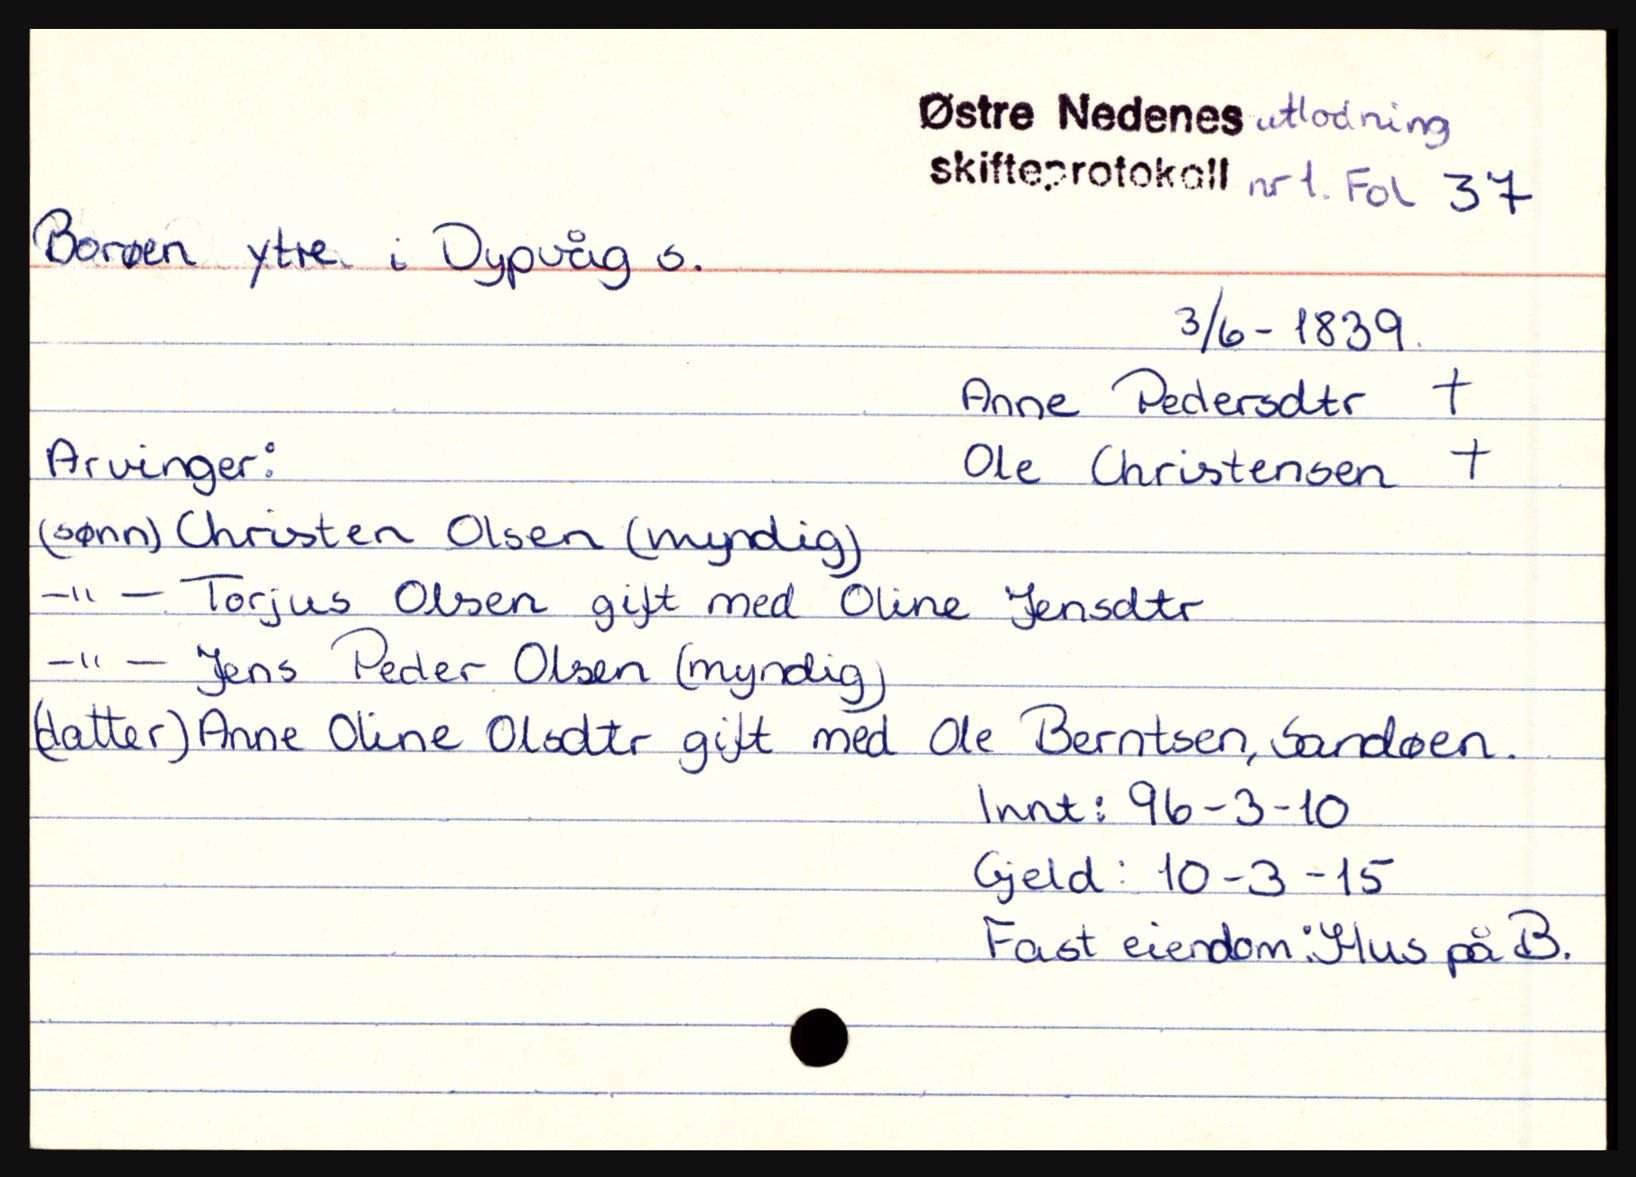 Østre Nedenes utlodning
skifteprotokoll nr 1. Fol 37
Borøen ytre i Dypvåg s.
3/6 - 1839.
Anne Pedersdtr †
Arvinger: Ole Christensen †
(sønn) Christen Olsen (myndig)
-"- Torjus Olsen gift med Oline Jensdtr
-"- Jens Peder Olsen (myndig)
(datter) Anne Oline Olsdtr gift med Ole Berntsen, Sandøen.
Innt: 96-3-10
Gjeld: 10-3-15
Fast eiendom: Hus på B.